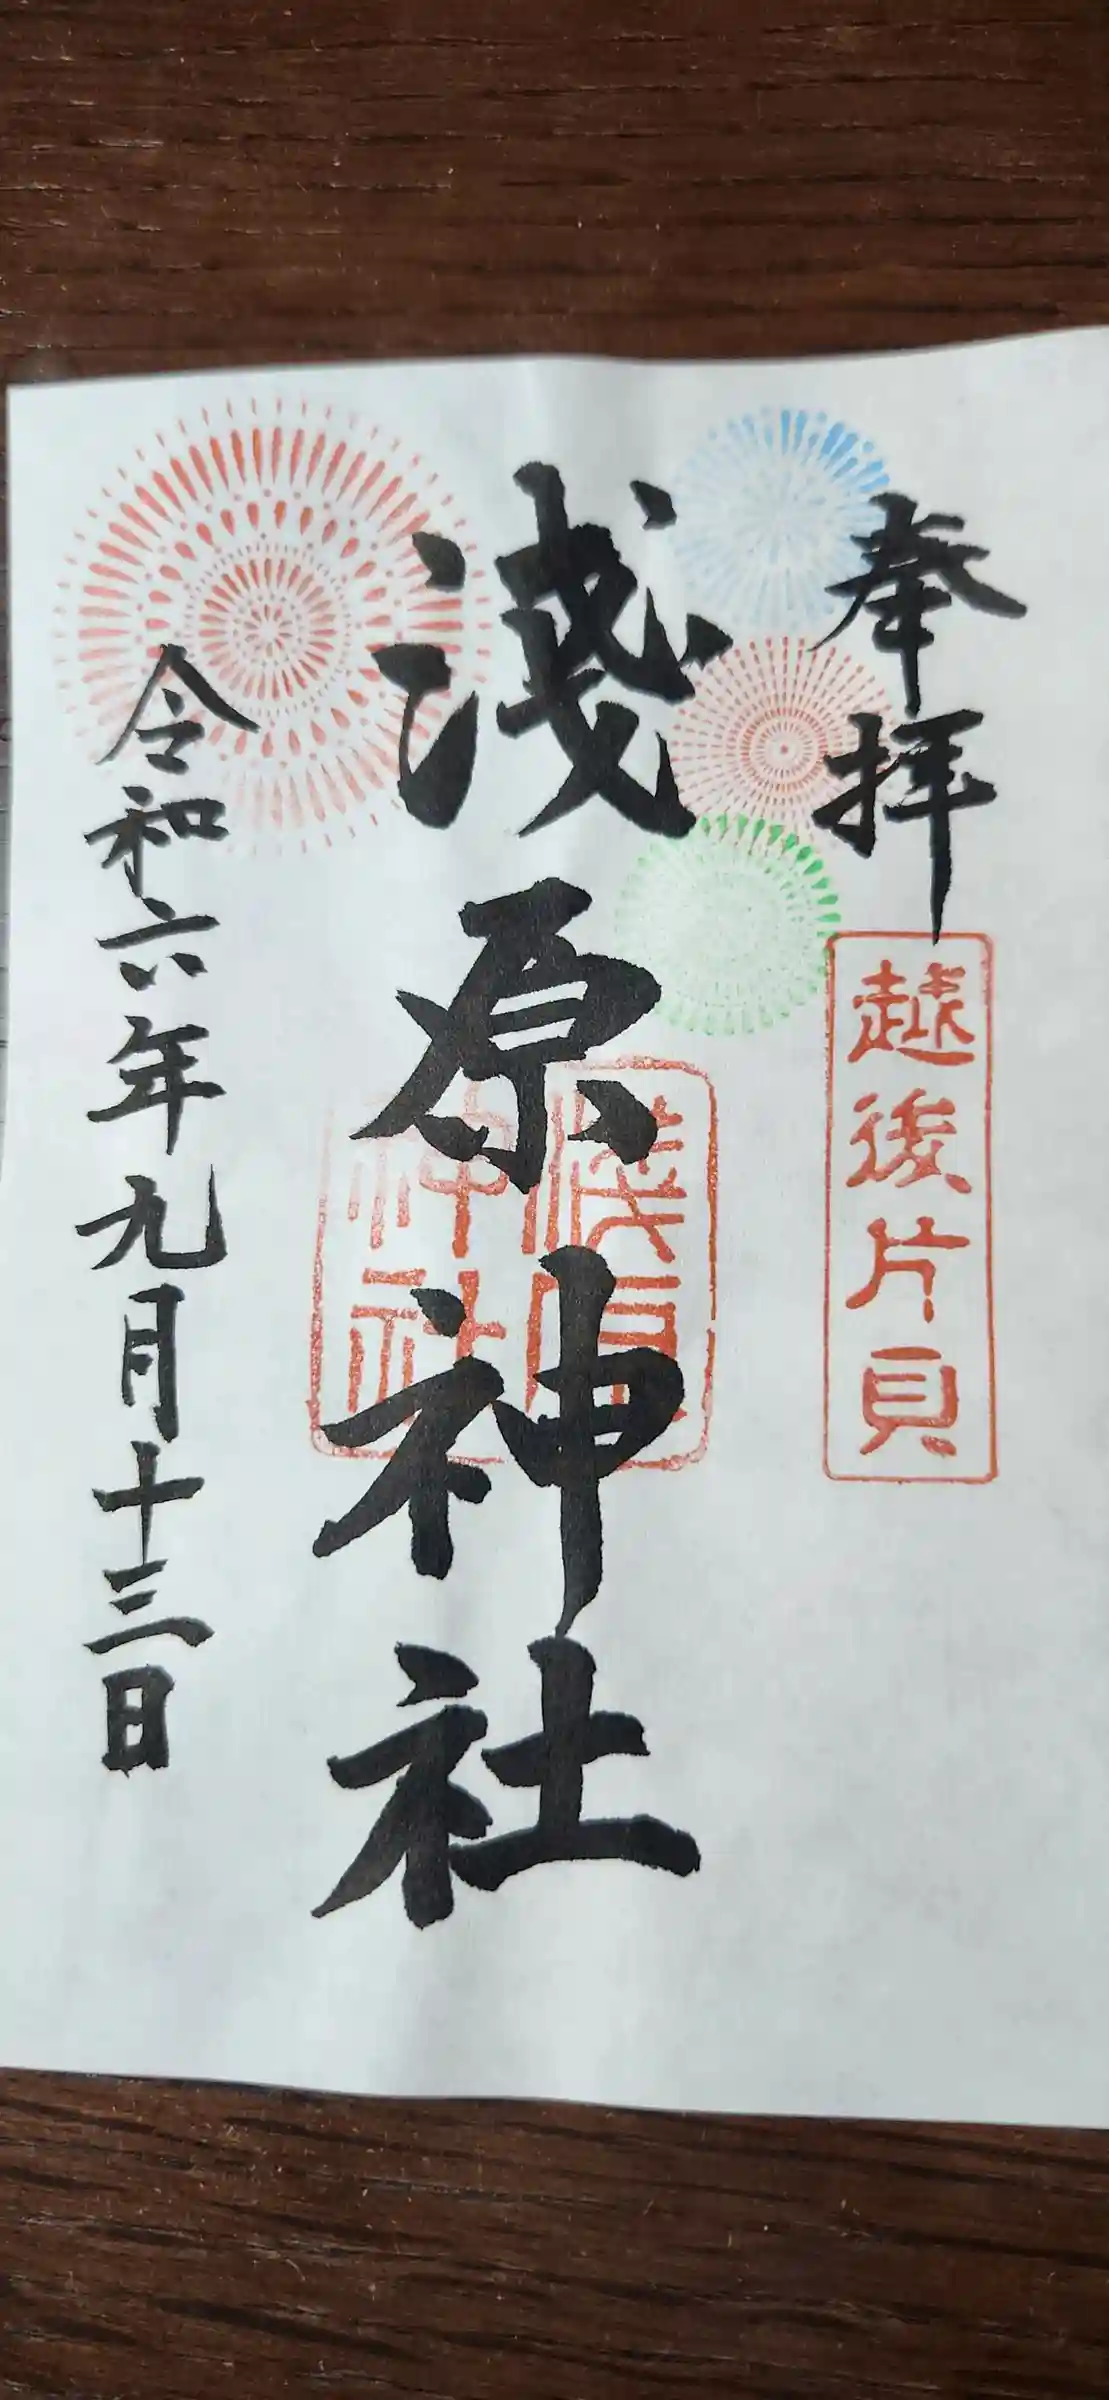 奉拝
越後片貝
淺原神社
淺原
神社
令和六年九月十三日